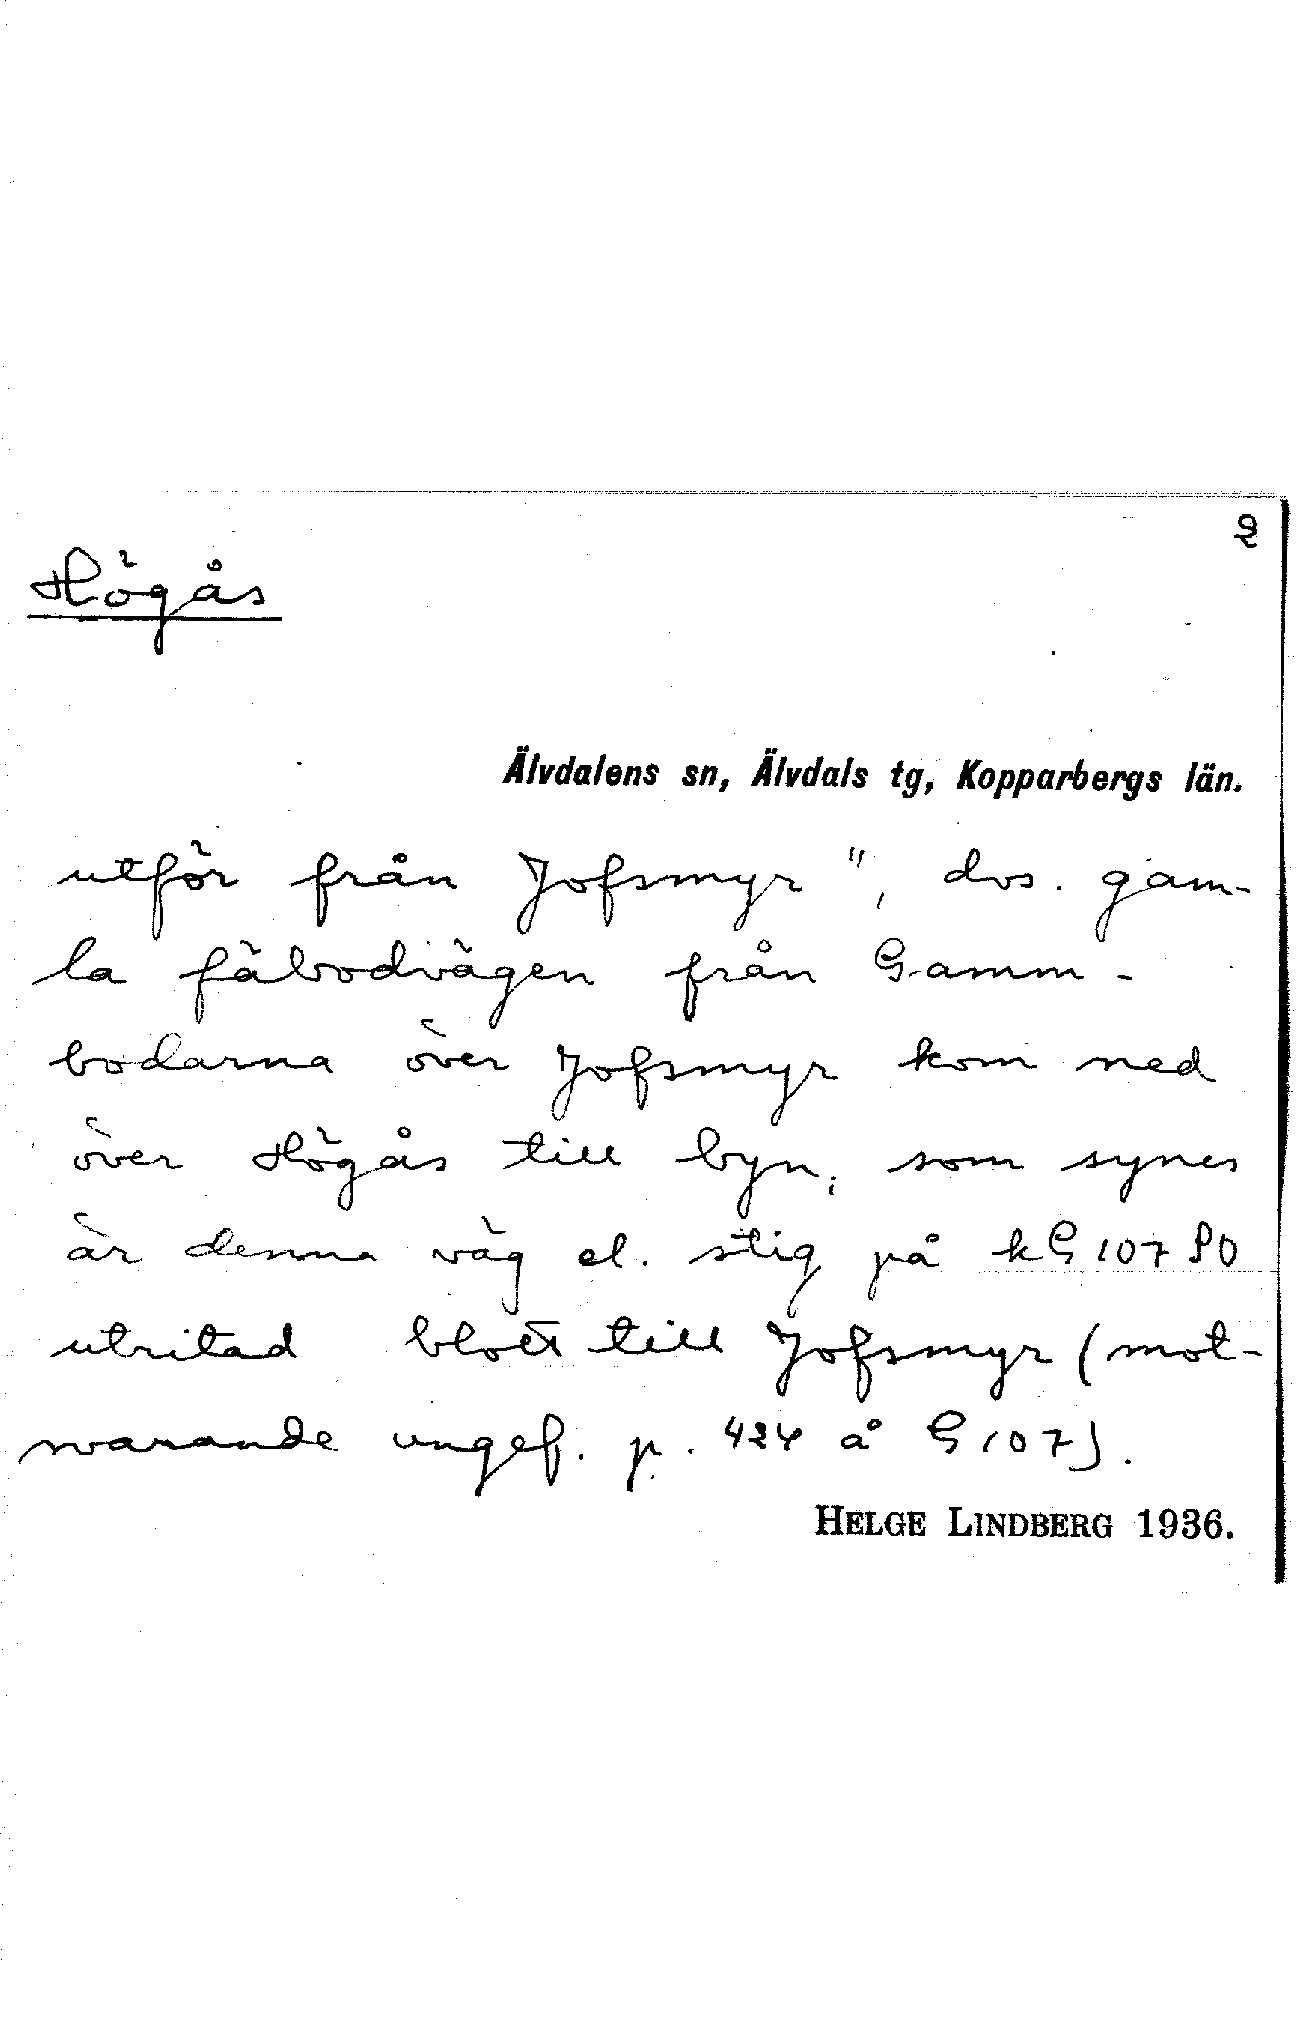 2
Högås
Älvdalens sn, Älvdals tg, Kopparbergs län.
utför från Jofsmyr", dvs. gam-
la fäbodvägen från Gamm-
bodarna över Jofsmyr kom ned
över Högås till byn; som synes
är denna väg el. stig på kG 107 80
utritad blott till Jofsmyr (mot-
svarande ungef. p. 424 å G 107).
HELGE LINDBERG 1936.